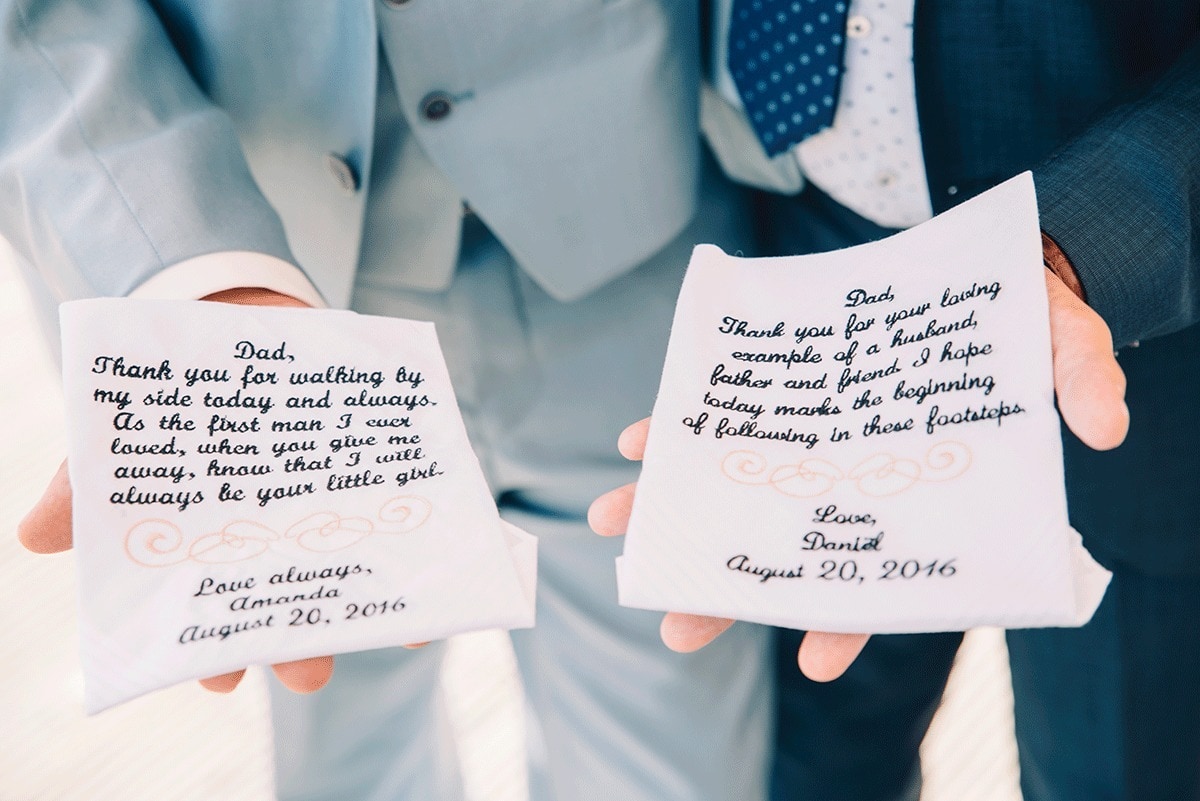 Dad,
Thank you for walking by
my side today and always.
As the first man I ever
loved, when you give me
away, know that I will
always be your little girl.
Love always,
Amanda
August 20, 2016
Dad,
Thank you for your loving
example of a husband,
father and friend. I hope
today marks the beginning
of following in these footsteps.
Love,
Daniel
August 20, 2016